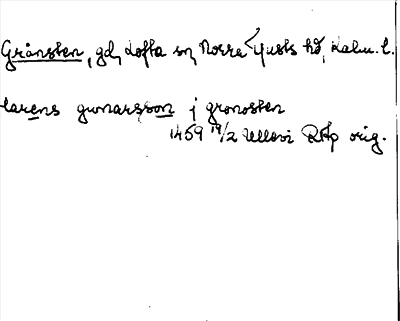 Grånsten, gd, Lofta sn, Norra Tjusts hd, Kalm. l.
larens gunarsson j gronosten
1459 19/2 Ullevi RAp orig.